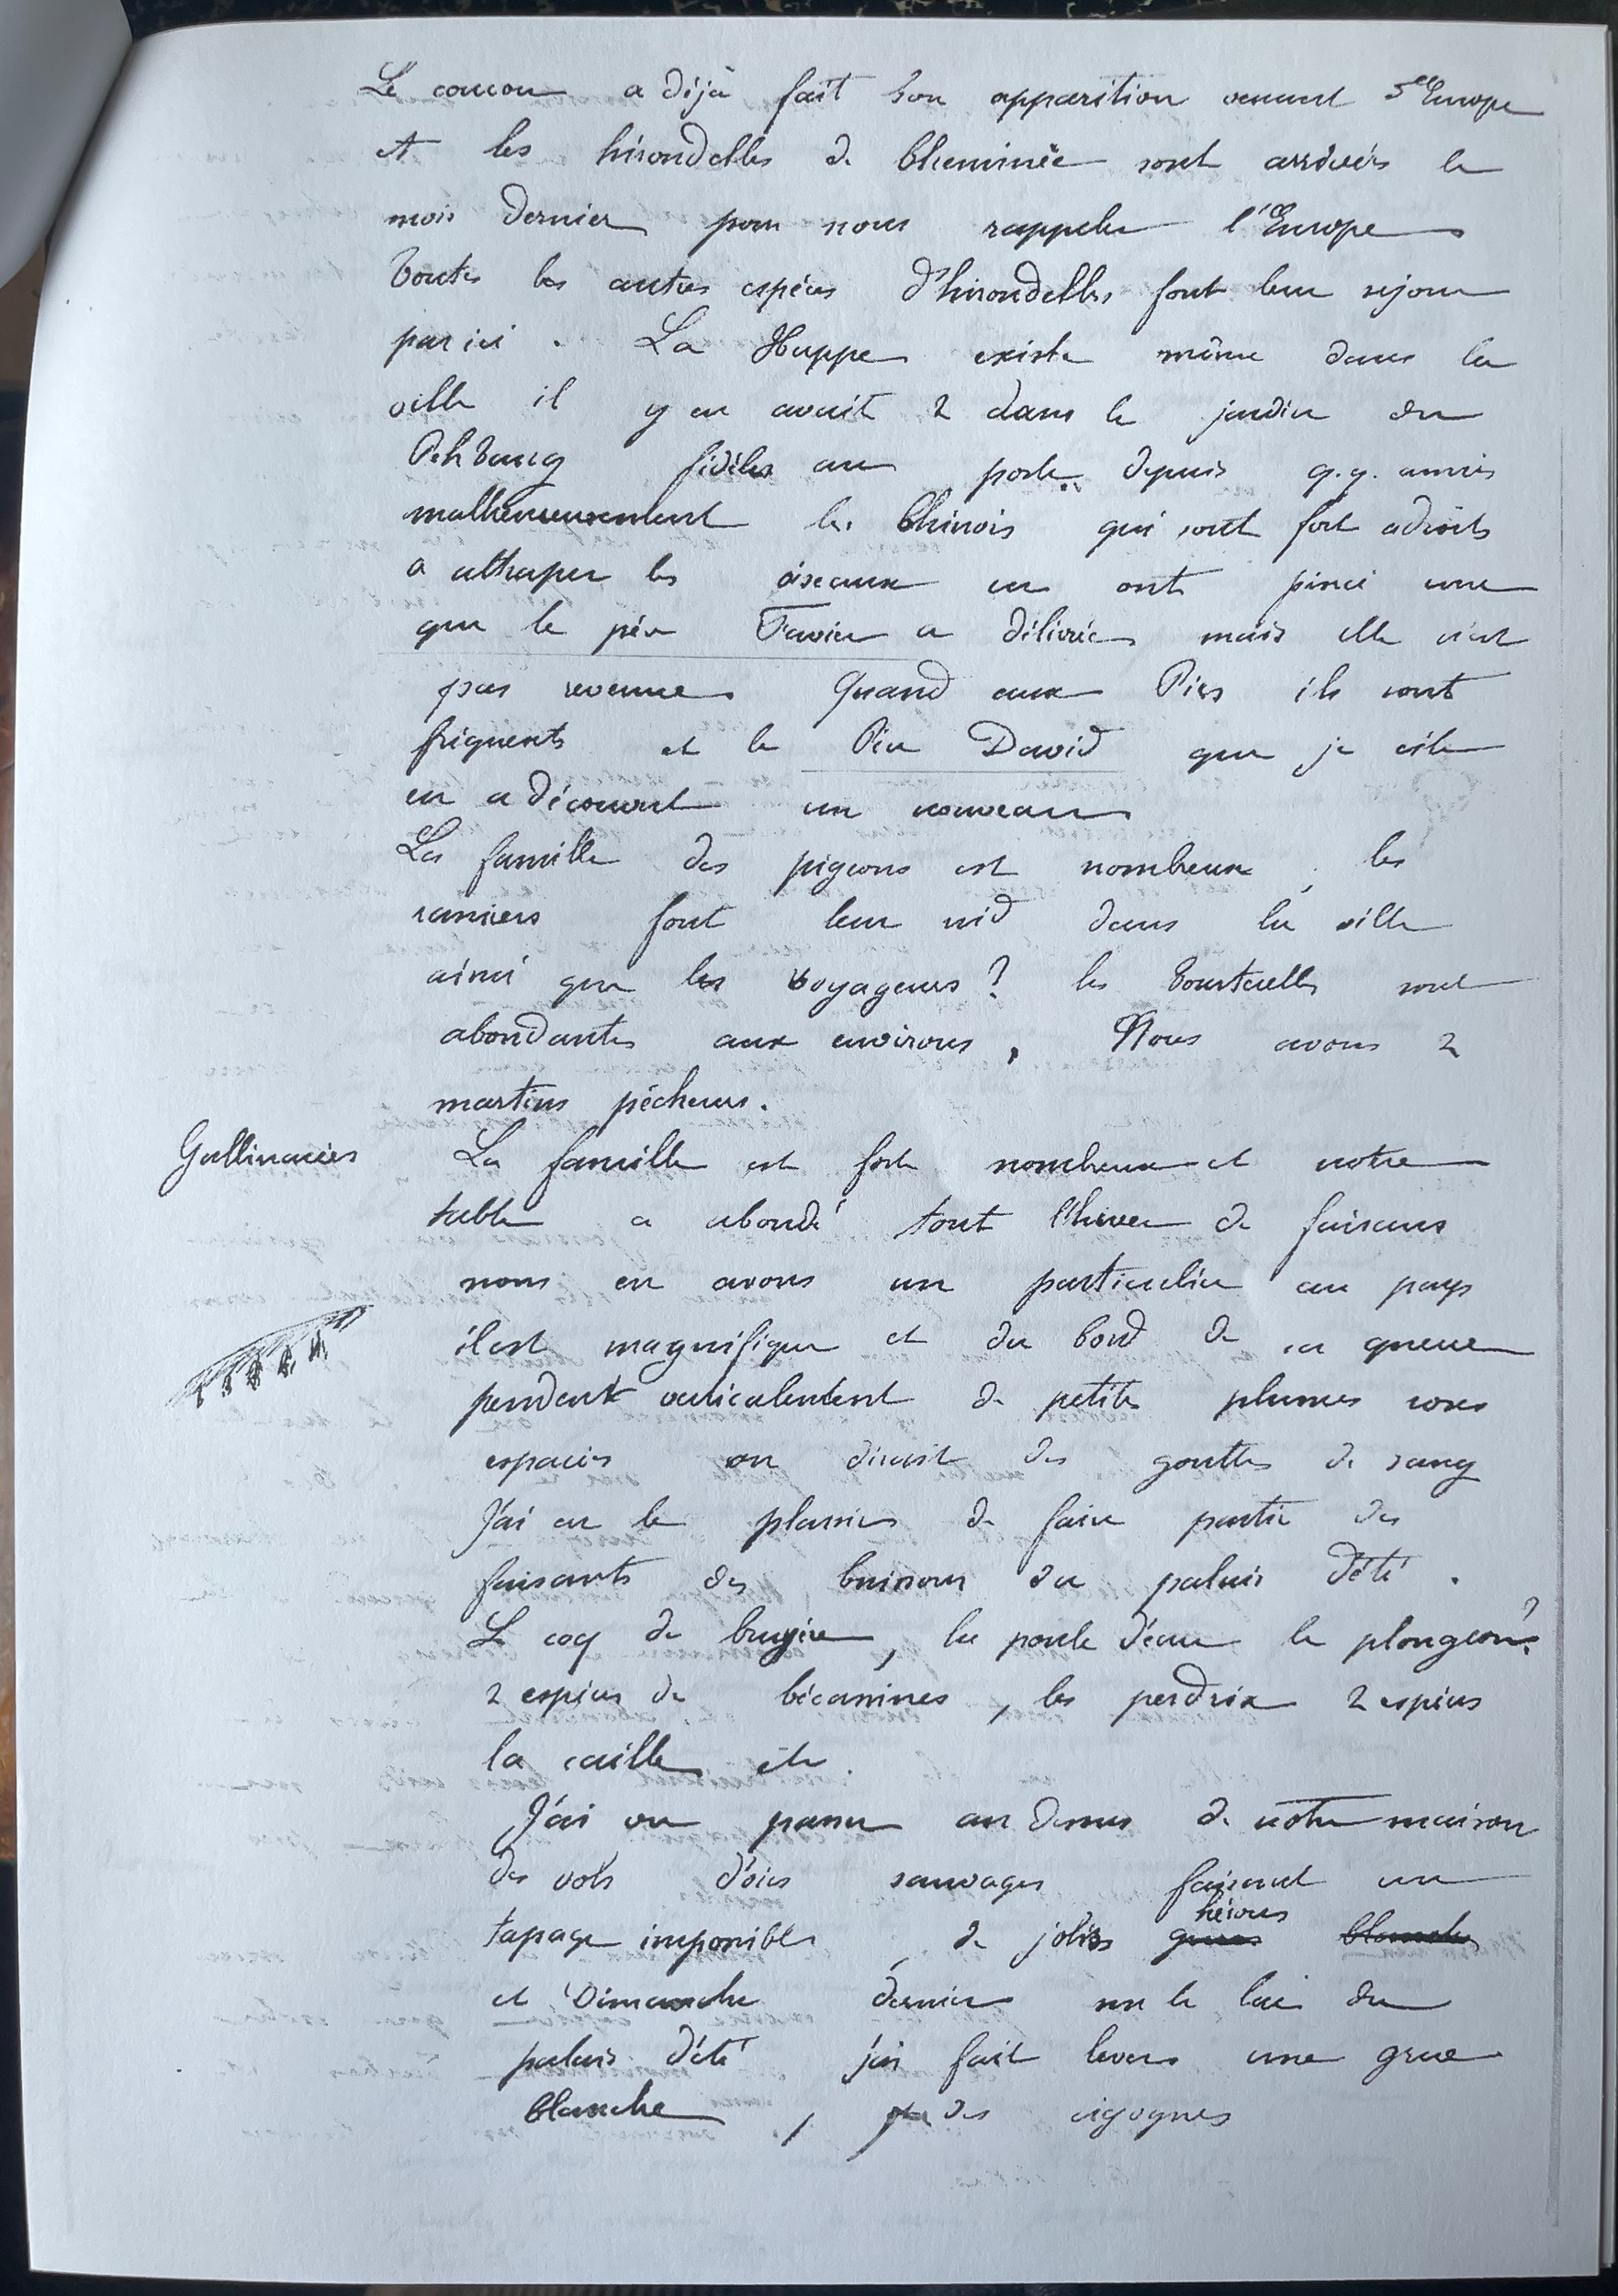 Le coucou a déjà fait son apparition venant d'Europe
et les hirondelles de Cheminée sont arrivées le
mois dernier pour nous rappeler l'Europe
Toutes les autres espèces d'hirondelles font leur séjour
par ici. La Huppe existe même dans la
ville il y en avait 2 dans le jardin du
Pehtang fidèles au poste depuis q.q. années
malheureusement les Chinois qui sont fort adroits
a attraper les oiseaux en ont pincé une
que le père Favier a délivrée mais elle n'est
pas revenue. Quand aux Pies ils sont
fréquents et le Père David que je cite
en a découvert un nouveau
La famille des pigeons est nombreuse, les
ramiers font leur nid dans la ville
ainsi que les voyageurs? les tourterelles sont
abondantes aux environs, Nous avons 2
martins pêcheurs.
Gallinacées
La famille est fort nombreuse et notre
table a abondé tout l'hiver de faisans
nous en avons un particulier au pays
il est magnifique et du bord de sa queue
pendent verticalement de petites plumes roses
espacées on dirait des gouttes de sang
J'ai eu le plaisir de faire partir des
faisants des buissons du palais d'été.
Le coq de bruyère, la poule d'eau le plongeon?
2 espèces de bécassines, les perdrix 2 espèces
la caille etc.
J'ai vu passer au dessus de notre maison
des vols d'oies sauvages faisant un
tapage impossible, de jolies grues hérons blanches
et Dimanche dernier sur le lac du
palais d'été j'ai fait lever une grue
blanche, des cigognes